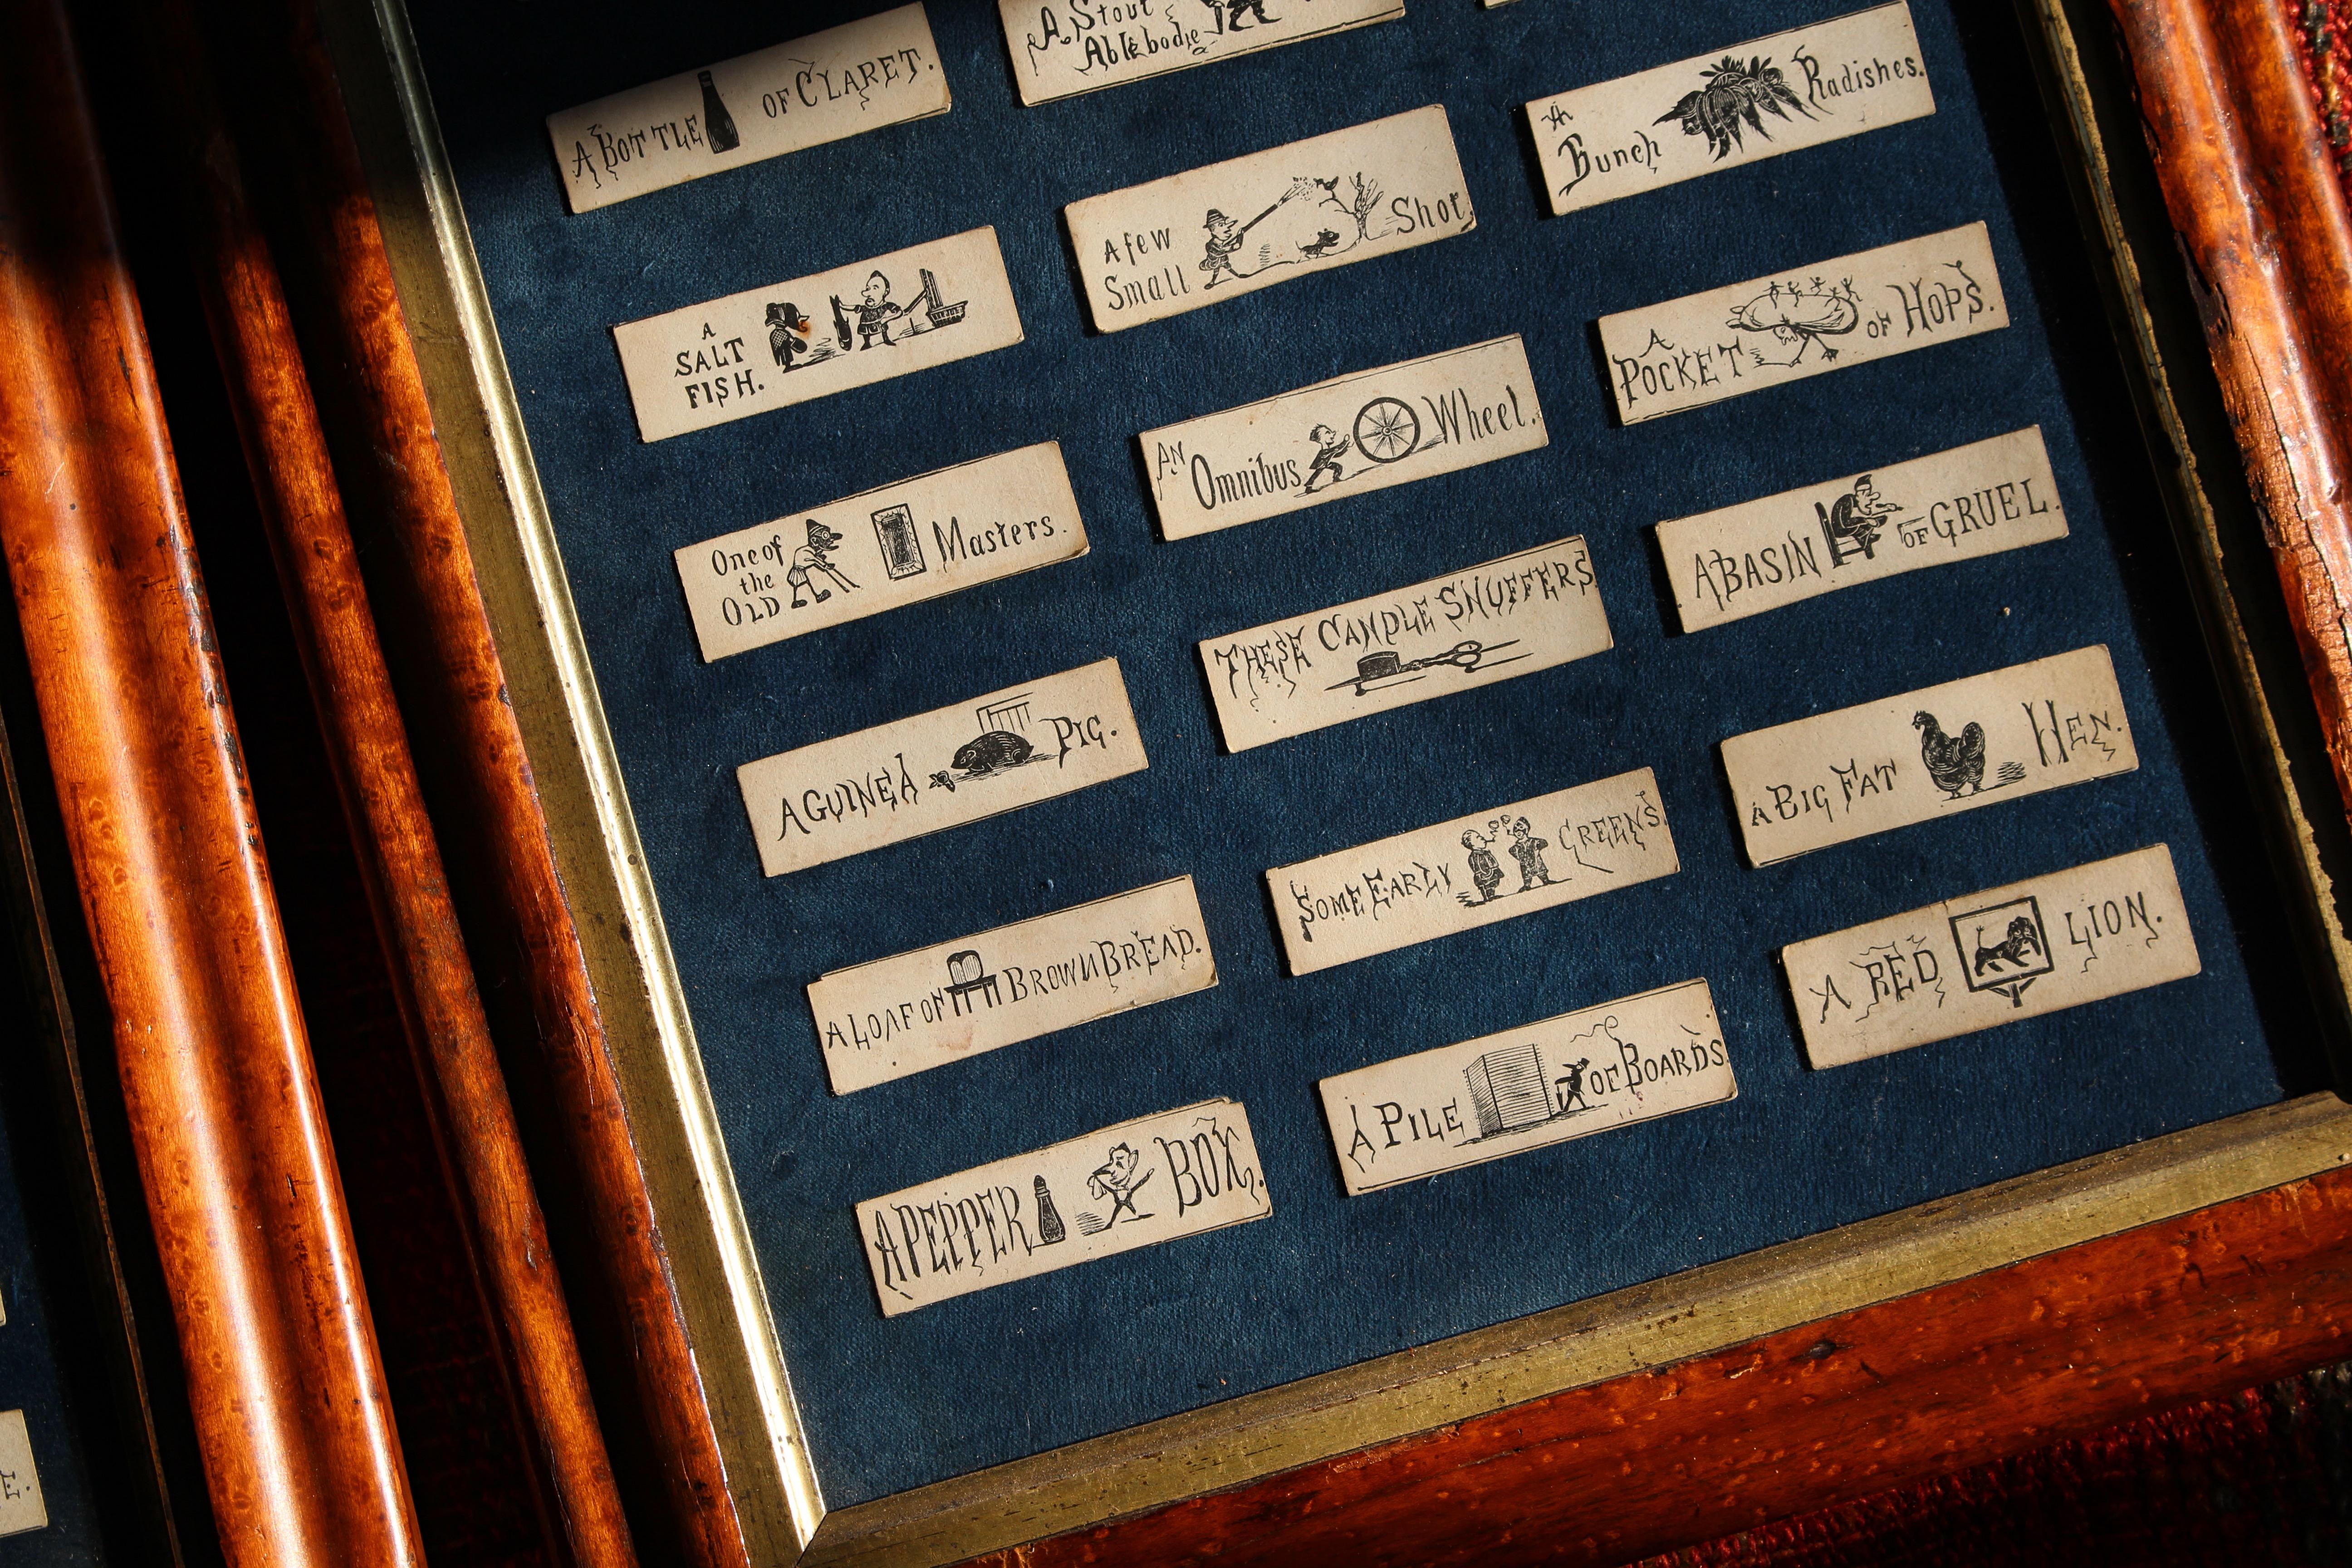 A BOTTLE OF CLARET.
A SALT FISH.
One of the OLD Masters.
A GUINEA PIG.
A LOAF OF BROWN BREAD.
A PEPPER BOX.
A Stout
Ablebodie
A few Small Shot.
AN Omnibus Wheel.
THESE CANDLE SNUFFERS
SOME EARLY GREENS.
A PILE OF BOARDS.
A Bunch Radishes.
A POCKET OF HOPS.
A BASIN OF GRUEL.
A BIG FAT HEN.
A RED LION.